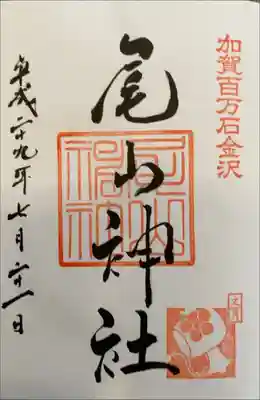 加賀百万石金沢
尾山神社
平成二十九年七月二十一日